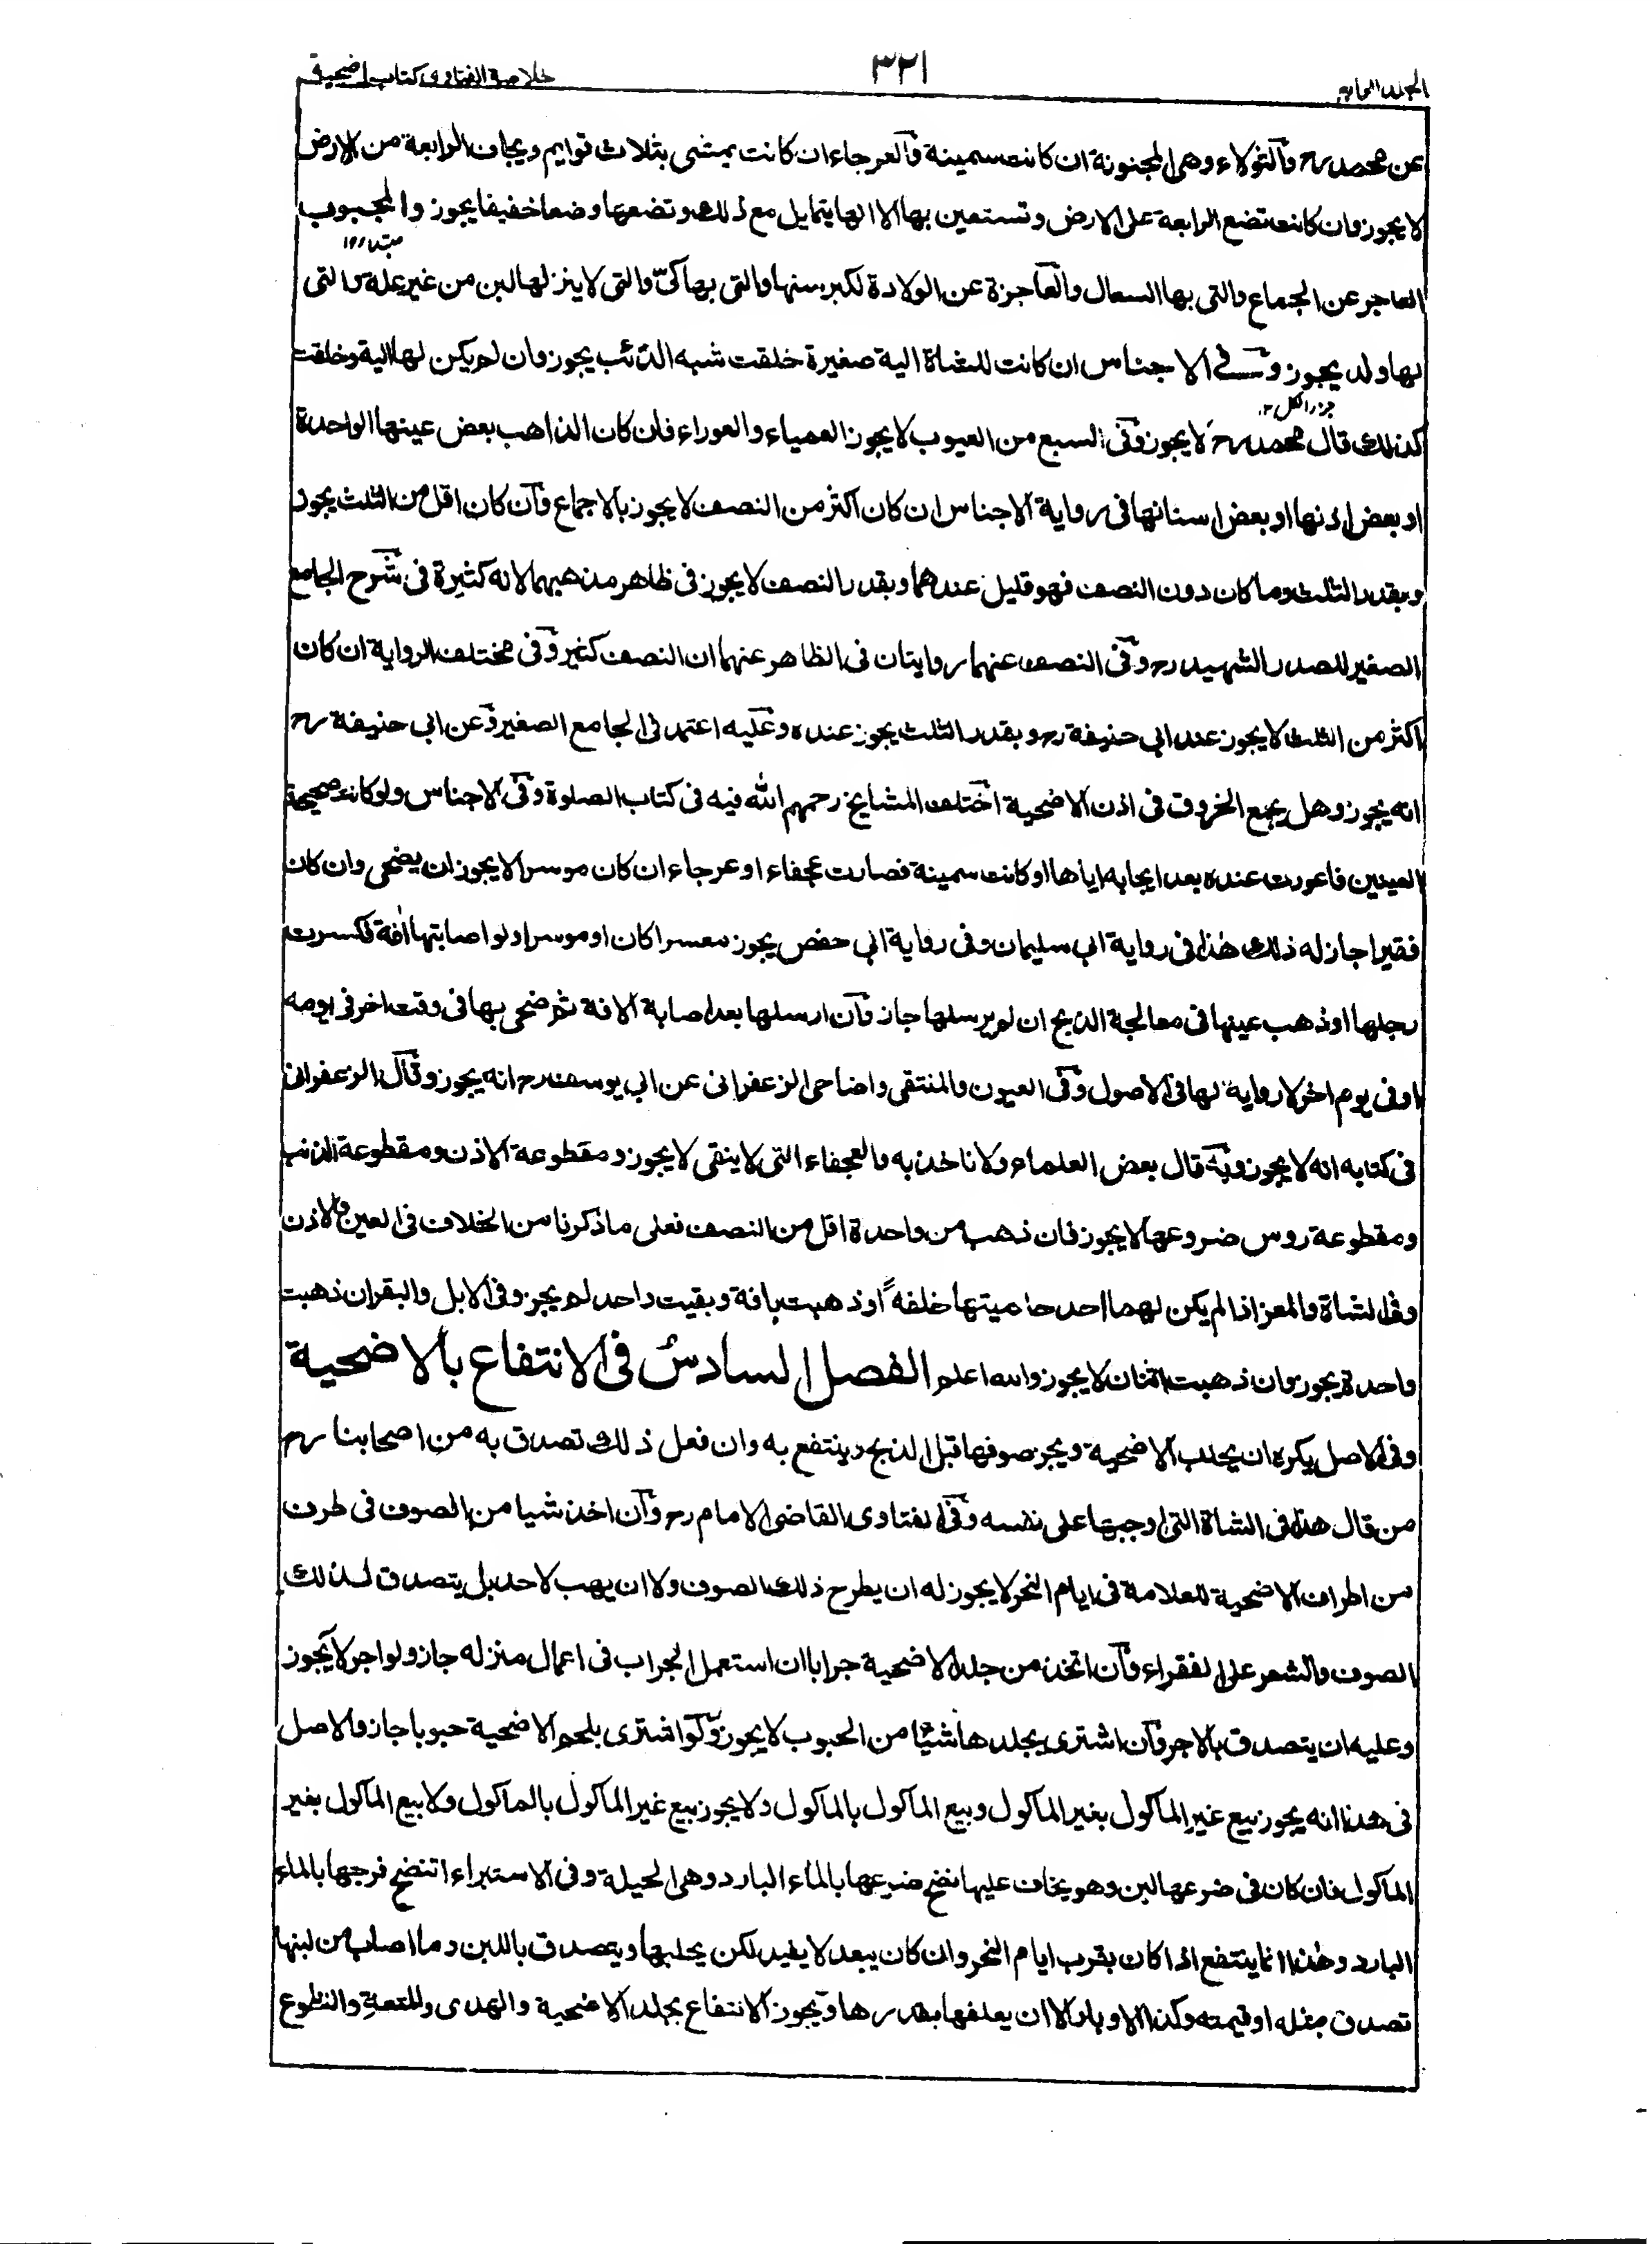 الجلد الرابع
٣٢١
خلاصة الفتاوى كتاب اضحية
عن محمد رح والتولاء وهى المجنونة ان كانت سمينة والعرجاء ان كانت يمشى بثلاث قوايم ويجاف الرابعة من الارض
لا يجوز وان كانت تضع الرابعة على الارض وتستعين بها الا انها يتمايل مع ذلك وتضعها وضعا خفيفا يجوز والمجبوب
مبتدا ١٢
العاجر عن الجماع والتى بها السعال والعاجزة عن الولادة لكبر سنها والتى بها كىّ والتى لا ينزل لها لبن من غير علة والتى
لها ولد يجوز وفي الاجناس ان كانت للشاة الية صغيرة خلقت شبه الذنب يجوز وان لم يكن لها الية وخلقت
خبر الكل ١٢
كذلك قال محمد رح لا يجوز وفى السبع من العيوب لا يجوز العمياء والعوراء فان كان الذاهب بعض عينها الواحدة
او بعض اذنها او بعض اسنانها فى رواية الاجناس ان كان اكثر من النصف لا يجوز بالاجماع وان كان اقل من الثلث يجوز
وبقدر الثلث وما كان دون النصف فهو قليل عندهما وبقدر النصف لا يجوز فى ظاهر مذهبهما لانه كثيرة فى شرح الجامع
الصغير للصدر الشهيد رح وفى النصف عنهما روايتان فى الظاهر عنهما ان النصف كثير وفى مختلف الرواية ان كان
اكثر من الثلث لا يجوز عند ابى حنيفة رح وبقدر الثلث يجوز عنده وعليه اعتمد فى الجامع الصغير وعن ابى حنيفة رح
انه يجوز وهل يجمع الخروق فى اذن الاضحية اختلف المشايخ رحمهم الله فيه فى كتاب الصلوة وفى الاجناس ولو كانت صحيحة
العينين فاعورت عنده بعد ايجابه اياها او كانت سمينة فصارت عجفاء او عرجاء ان كان موسرا لا يجوز ان يضحى وان كان
فقيرا جاز له ذلك هذا فى رواية ابى سليمان وفى رواية ابى حفص يجوز معسرا كان او موسرا ولو اصابتها افة فكسرت
رجلها او ذهب عينها فى معالجة الذبح ان لم يرسلها جاز وان ارسلها بعد اصابة الافة ثم ضحى بها فى وقت اخر فى يومه
او فى يوم اخر لا رواية لها فى الاصول وفى العيون والمنتقى واضاحى الزعفرانى عن ابى يوسف رح انه يجوز وقال الزعفرانى
فى كتابه انه لا يجوز وبه قال بعض العلماء ولا ناخذ به والعجفاء التى لا ينقى لا يجوز ومقطوعة الاذن ومقطوعة الذنب
ومقطوعة روس ضروعها لا يجوز فان ذهب من واحدة اقل من النصف فعلى ما ذكرنا من الخلاف فى العين والاذن
وفى الشاة والمعز اذا لم يكن لهما احد حلميتها خلقة او ذهبت بافة وبقيت واحد لم يجز وفى الابل والبقر ان ذهبت
واحدة يجوز وان ذهبت اثنان لا يجوز والله اعلم الفصل السادس فى الانتفاع بالاضحية
وفى الاصل يكره ان يحلب الاضحية ويجز صوفها قبل الذبح وينتفع به وان فعل ذلك تصدق به من اصحابنا رح
من قال هذا فى الشاة التى اوجبها على نفسه وفى الفتاوى القاضى الامام رح وان اخذ شيا من الصوف فى طرف
من اطراف الاضحية للعلامة فى ايام النحر لا يجوز له ان يطرح ذلك الصوف ولا ان يهب لاحد بل يتصدق لذلك
الصوف والشعر على الفقراء وان اتخذ من جلد الاضحية جرابا ان استعمل الجراب فى اعمال منزله جاز ولو اجر لا يجوز
وعليه ان يتصدق بالاجر وان اشترى بجلدها شيئا من الحبوب لا يجوز ولو اشترى بلحم الاضحية حبوبا جاز والاصل
فى هذا انه يجوز بيع غير الماكول بغير الماكول وبيع الماكول بالماكول ولا يجوز بيع غير الماكول بالماكول ولا بيع الماكول بغير
الماكول فان كان فى ضرعها لبن وهو يخاف عليها نضح ضرعها بالماء البارد وهى الحيلة وفى الاستبراء اتنضح فرجها بالماء
البارد وهذا انما ينتفع اذا كان بقرب ايام النحر وان كان يبعد لا يفيد لكن يحلبها ويتصدق باللبن وما اصاب من لبنها
تصدق مثله او قيمته وكذا الاوبار الا ان يعلفها بقدرها ويجوز الانتفاع بجلد الاضحية والهدى والمتعة والتطوع